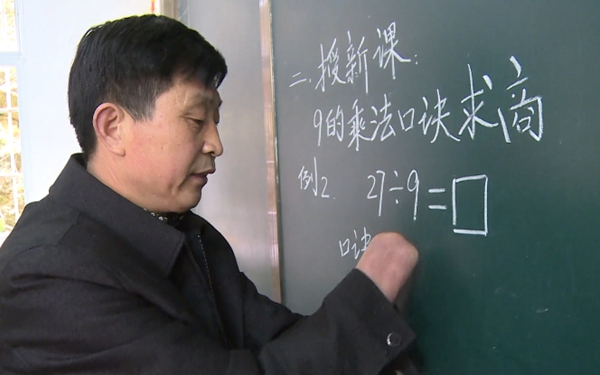 二.授新课:
9的乘法口诀求商
例2. 27÷9=□
口诀